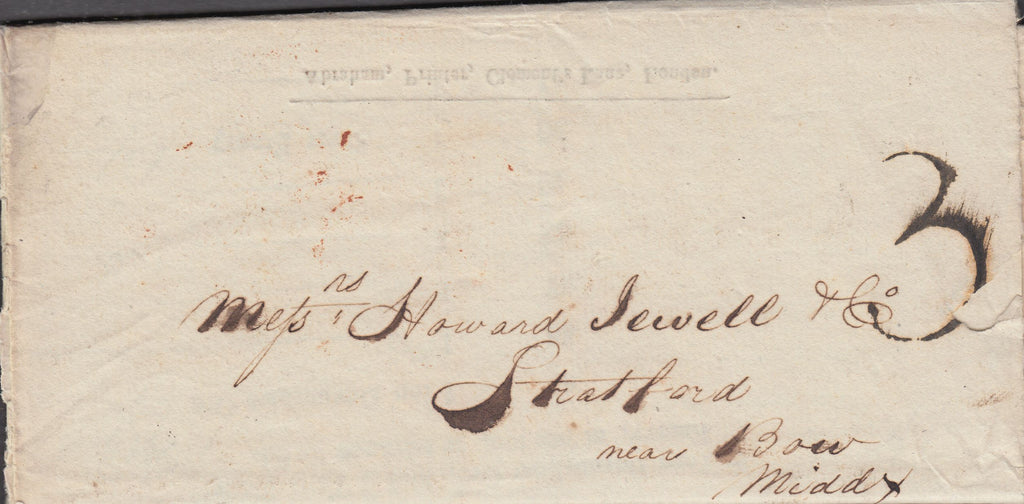 Abraham, Printer, Clement's Lane, London.
3
Mess.rs Howard Jewell & Co
Stratford
near Bow
Middx